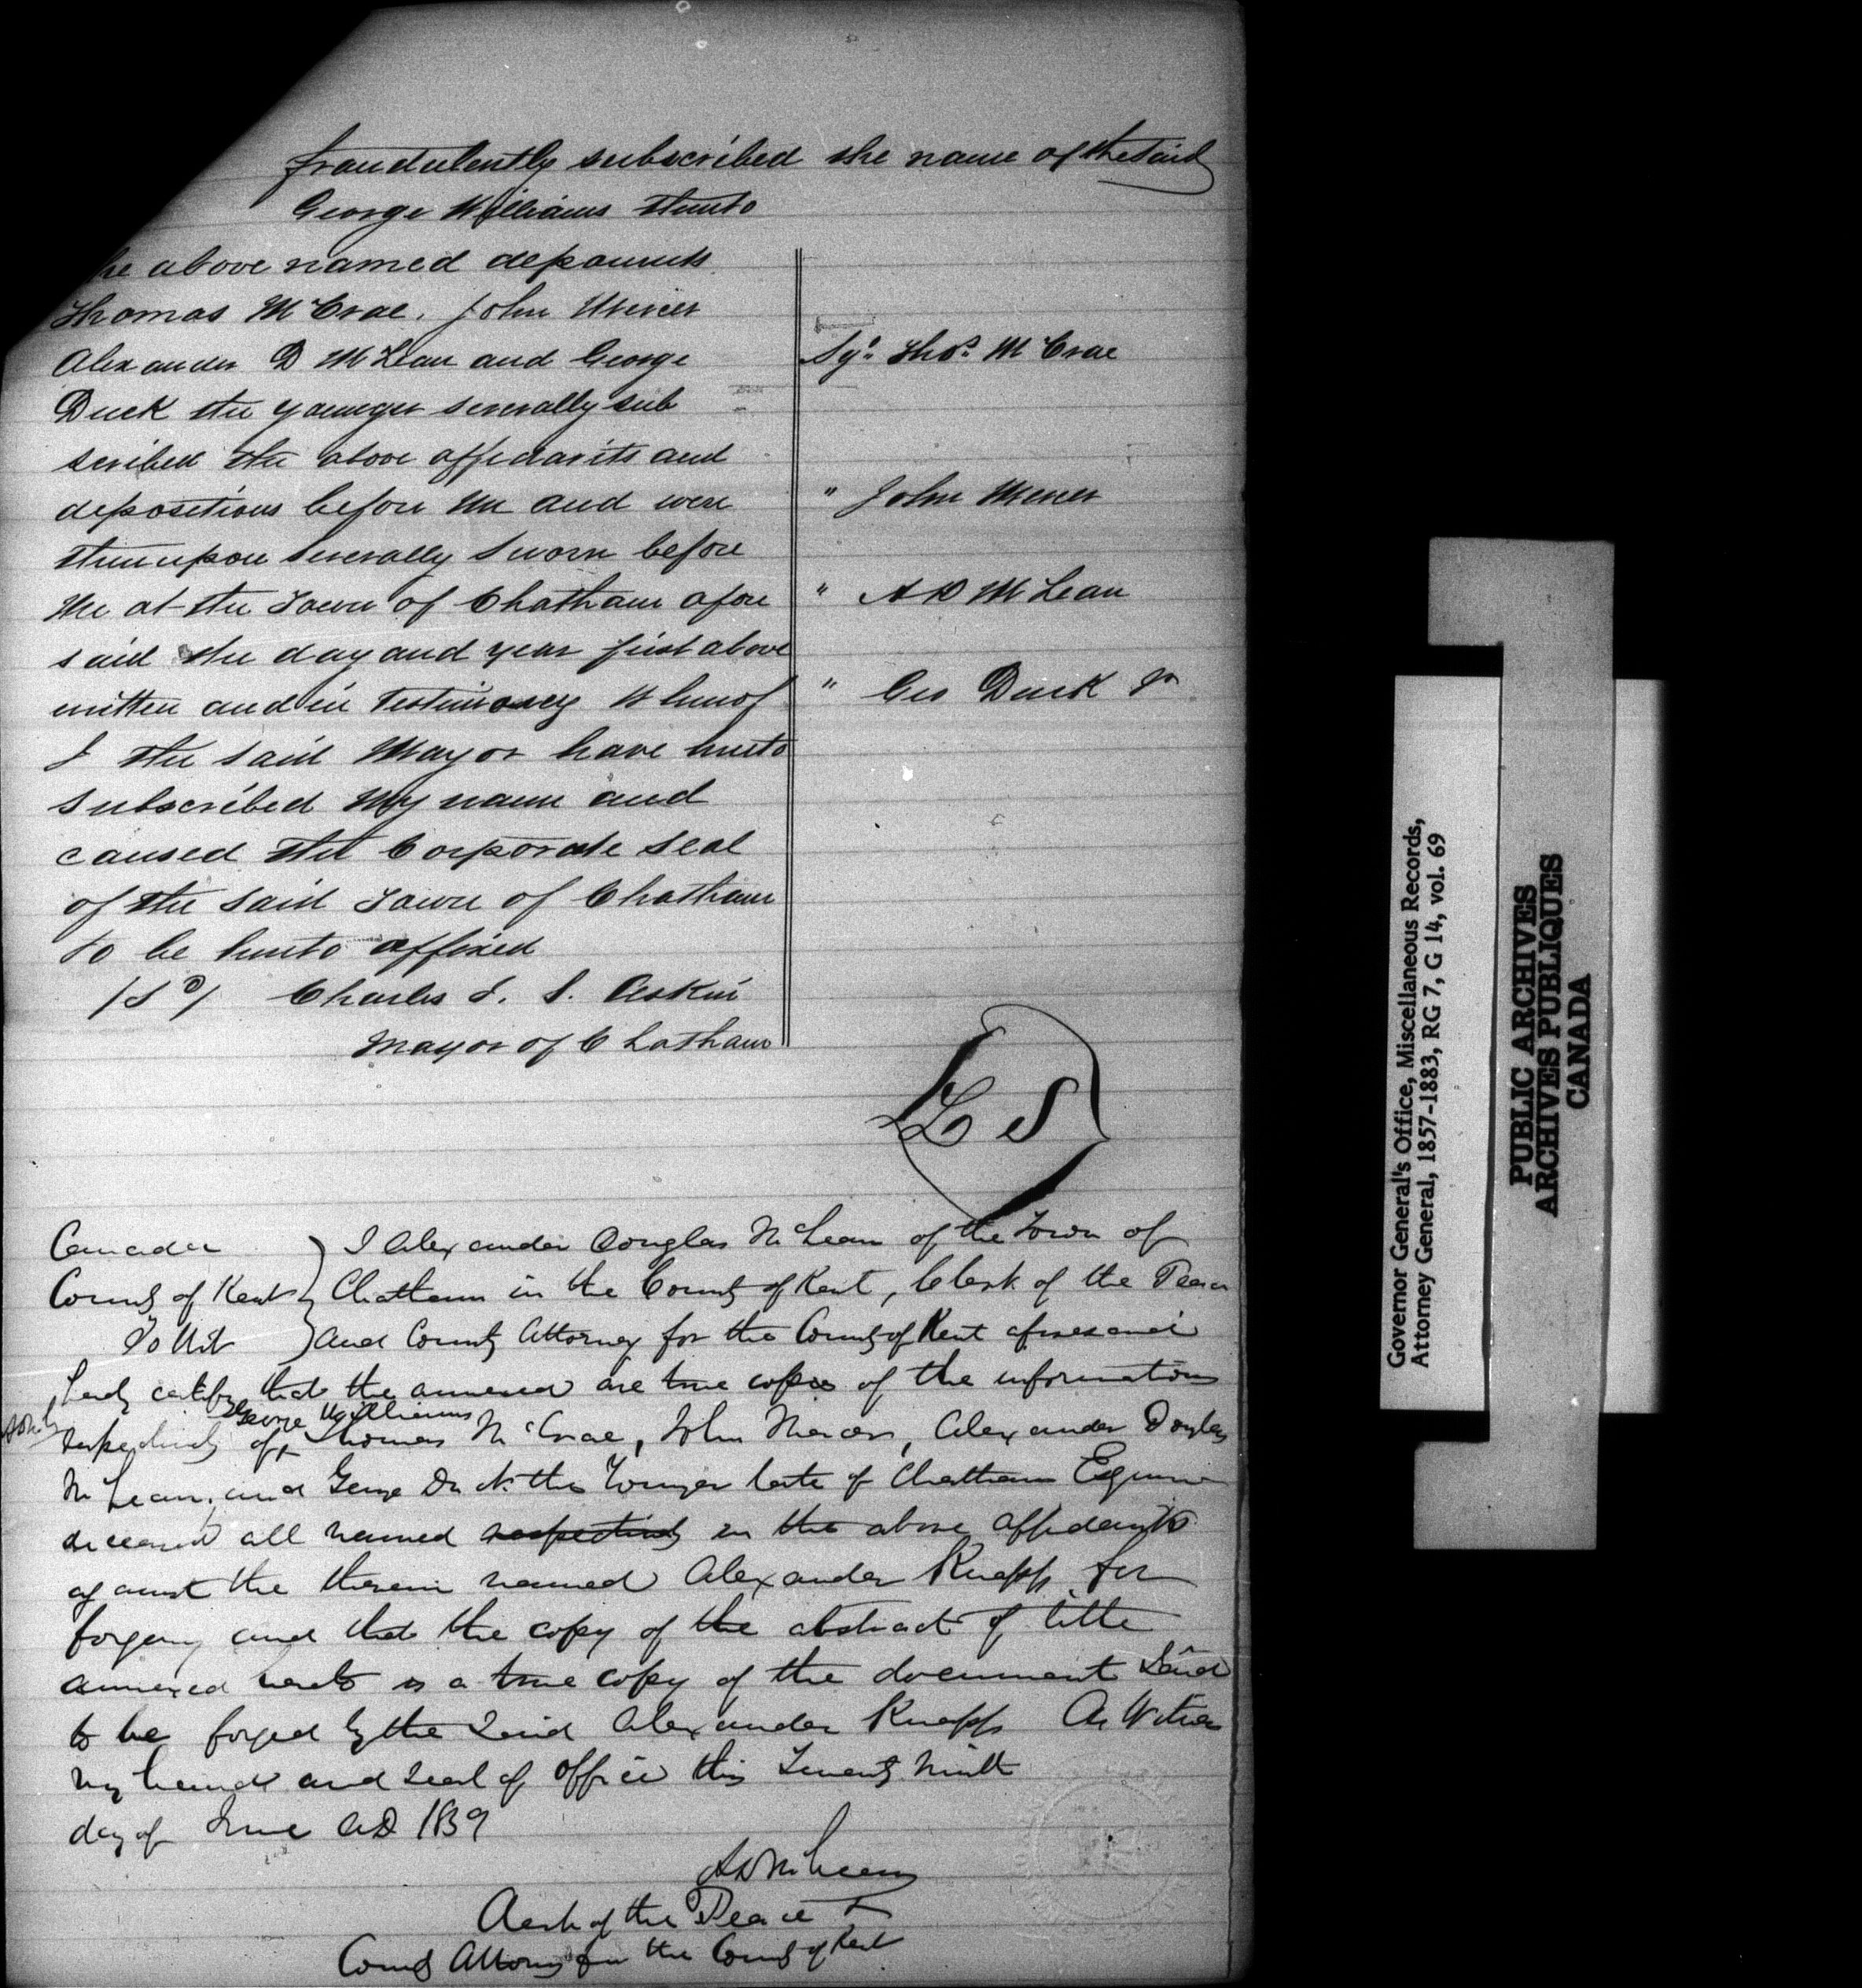 fraudulently subscribed the name of the said
George Williams thereto
he above named deponents
Thomas McCrae, John Mercer
Alexander D McLean and George
Duck the younger severally sub
scribed the above affidavits and
depositions before me and were
thereupon severally sworn before
me at the Town of Chatham afore
said the day and year first above
written and in Testimony Whereof
I the said Mayor have hereto
subscribed my name and
caused the Corporate seal
of the said Town of Chatham
to be hereto affixed
/Sd/ Charles I. S. Askin
Mayor of Chatham
Sgd. Thos. McCrae
" John Mercer
" A D McLean
" Geo Duck Jr
L S
Canada
County of Kent
To Wit
I Alexander Douglas McLean of the Town of
Chatham in the County of Kent, Clerk of the Peace
and County Attorney for the County of Kent aforesaid
hereby certify that the annexed are true copies of the informations
George Williams
respectively of Thomas McCrae, John Mercer, Alexander Douglas
McLean, and George Duck the Younger late of Chatham Esquire
deceased all named respectively in the above affidavits
against the therein named Alexander Knapp for
forgery and that the copy of the abstract of title
annexed hereto is a true copy of the document said
to be forged by the said Alexander Knapp As Witness
my hand and seal of office this Twenty ninth
day of June AD 1859
A D McLean
Clerk of the Peace &
County Attorney for the County of Kent
Governor General's Office, Miscellaneous Records,
Attorney General, 1857-1883, RG 7, G 14, vol. 69
PUBLIC ARCHIVES
ARCHIVES PUBLIQUES
CANADA